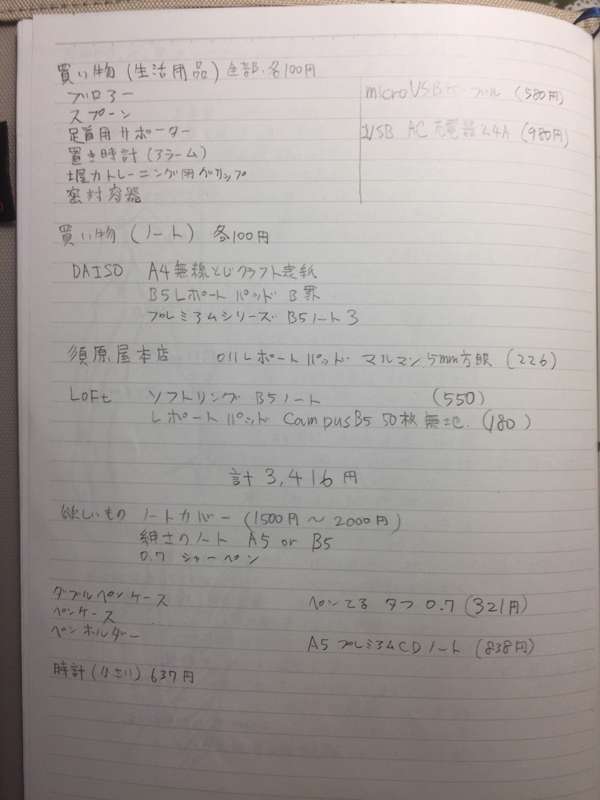 買い物 (生活用品) 全部・各100円
ブロアー
スプーン
足首用サポーター
置き時計 (アラーム)
握力トレーニング用グリップ
密封容器
microUSBケーブル (580円)
USB AC充電器2.4A (980円)
買い物 (ノート) 各100円
DAISO A4無線とじクラフト表紙
B5レポートパッド B罫
プレミアムシリーズ B5ノート3
須原屋本店 011レポートパッド マルマン5mm方眼 (226)
LOFt ソフトリング B5ノート (550)
レポートパッド CampusB5 50枚 無地. (180)
計 3,416円
欲しいもの ノートカバー (1500円〜2000円)
紳士のノート A5 or B5
0.7 シャーペン
ダブルペンケース
ペンケース
ペンホルダー
ぺんてる タフ 0.7 (321円)
A5 プレミアムCDノート (838円)
時計 (小さい) 637円